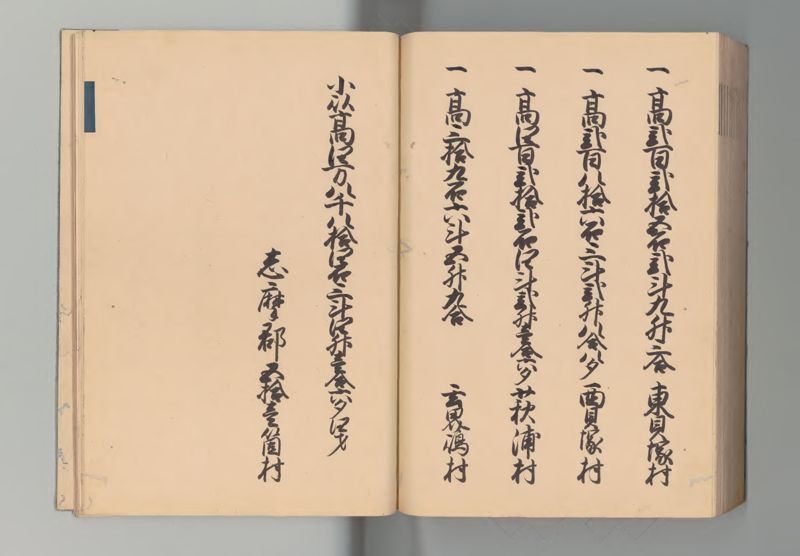 一 高弐百弐拾五石弐斗九升六合 東貝塚村
一 高弐百八拾六石三斗弐升八合八夕 西貝塚村
一 高四百弐拾弐石四斗弐升壱合六夕 荻浦村
一 高三拾九石六斗五升九合 玄界嶋村
小以高四万八千八拾四石三斗四升壱合六夕四才
志摩郡五拾壱箇村